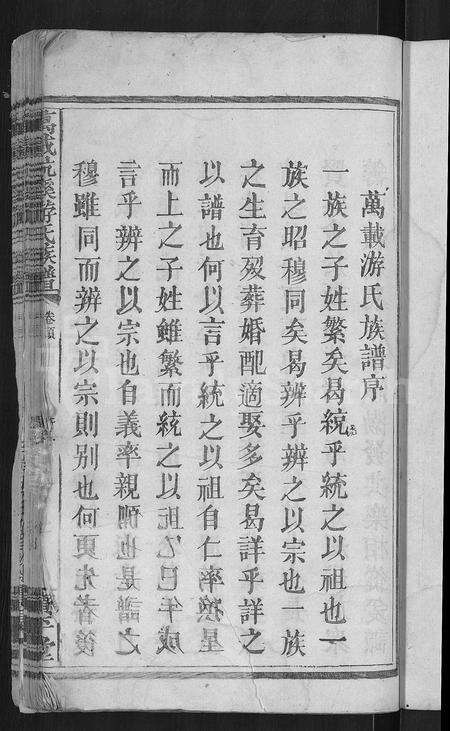 萬載游氏族譜序
一族之子姓繁矣曷統乎統之以祖也一
族之昭穆同矣曷辨乎辨之以宗也一族
之生育歿葬婚配適娶多矣曷詳乎詳之
以譜也何以言乎統之以祖自仁率
而上之子姓雖繁而統之以祖乙巳年成
言乎辨之以宗也自義率親也是譜之
穆雖同而辨之以宗則别也何
游氏族譜
卷首
堂